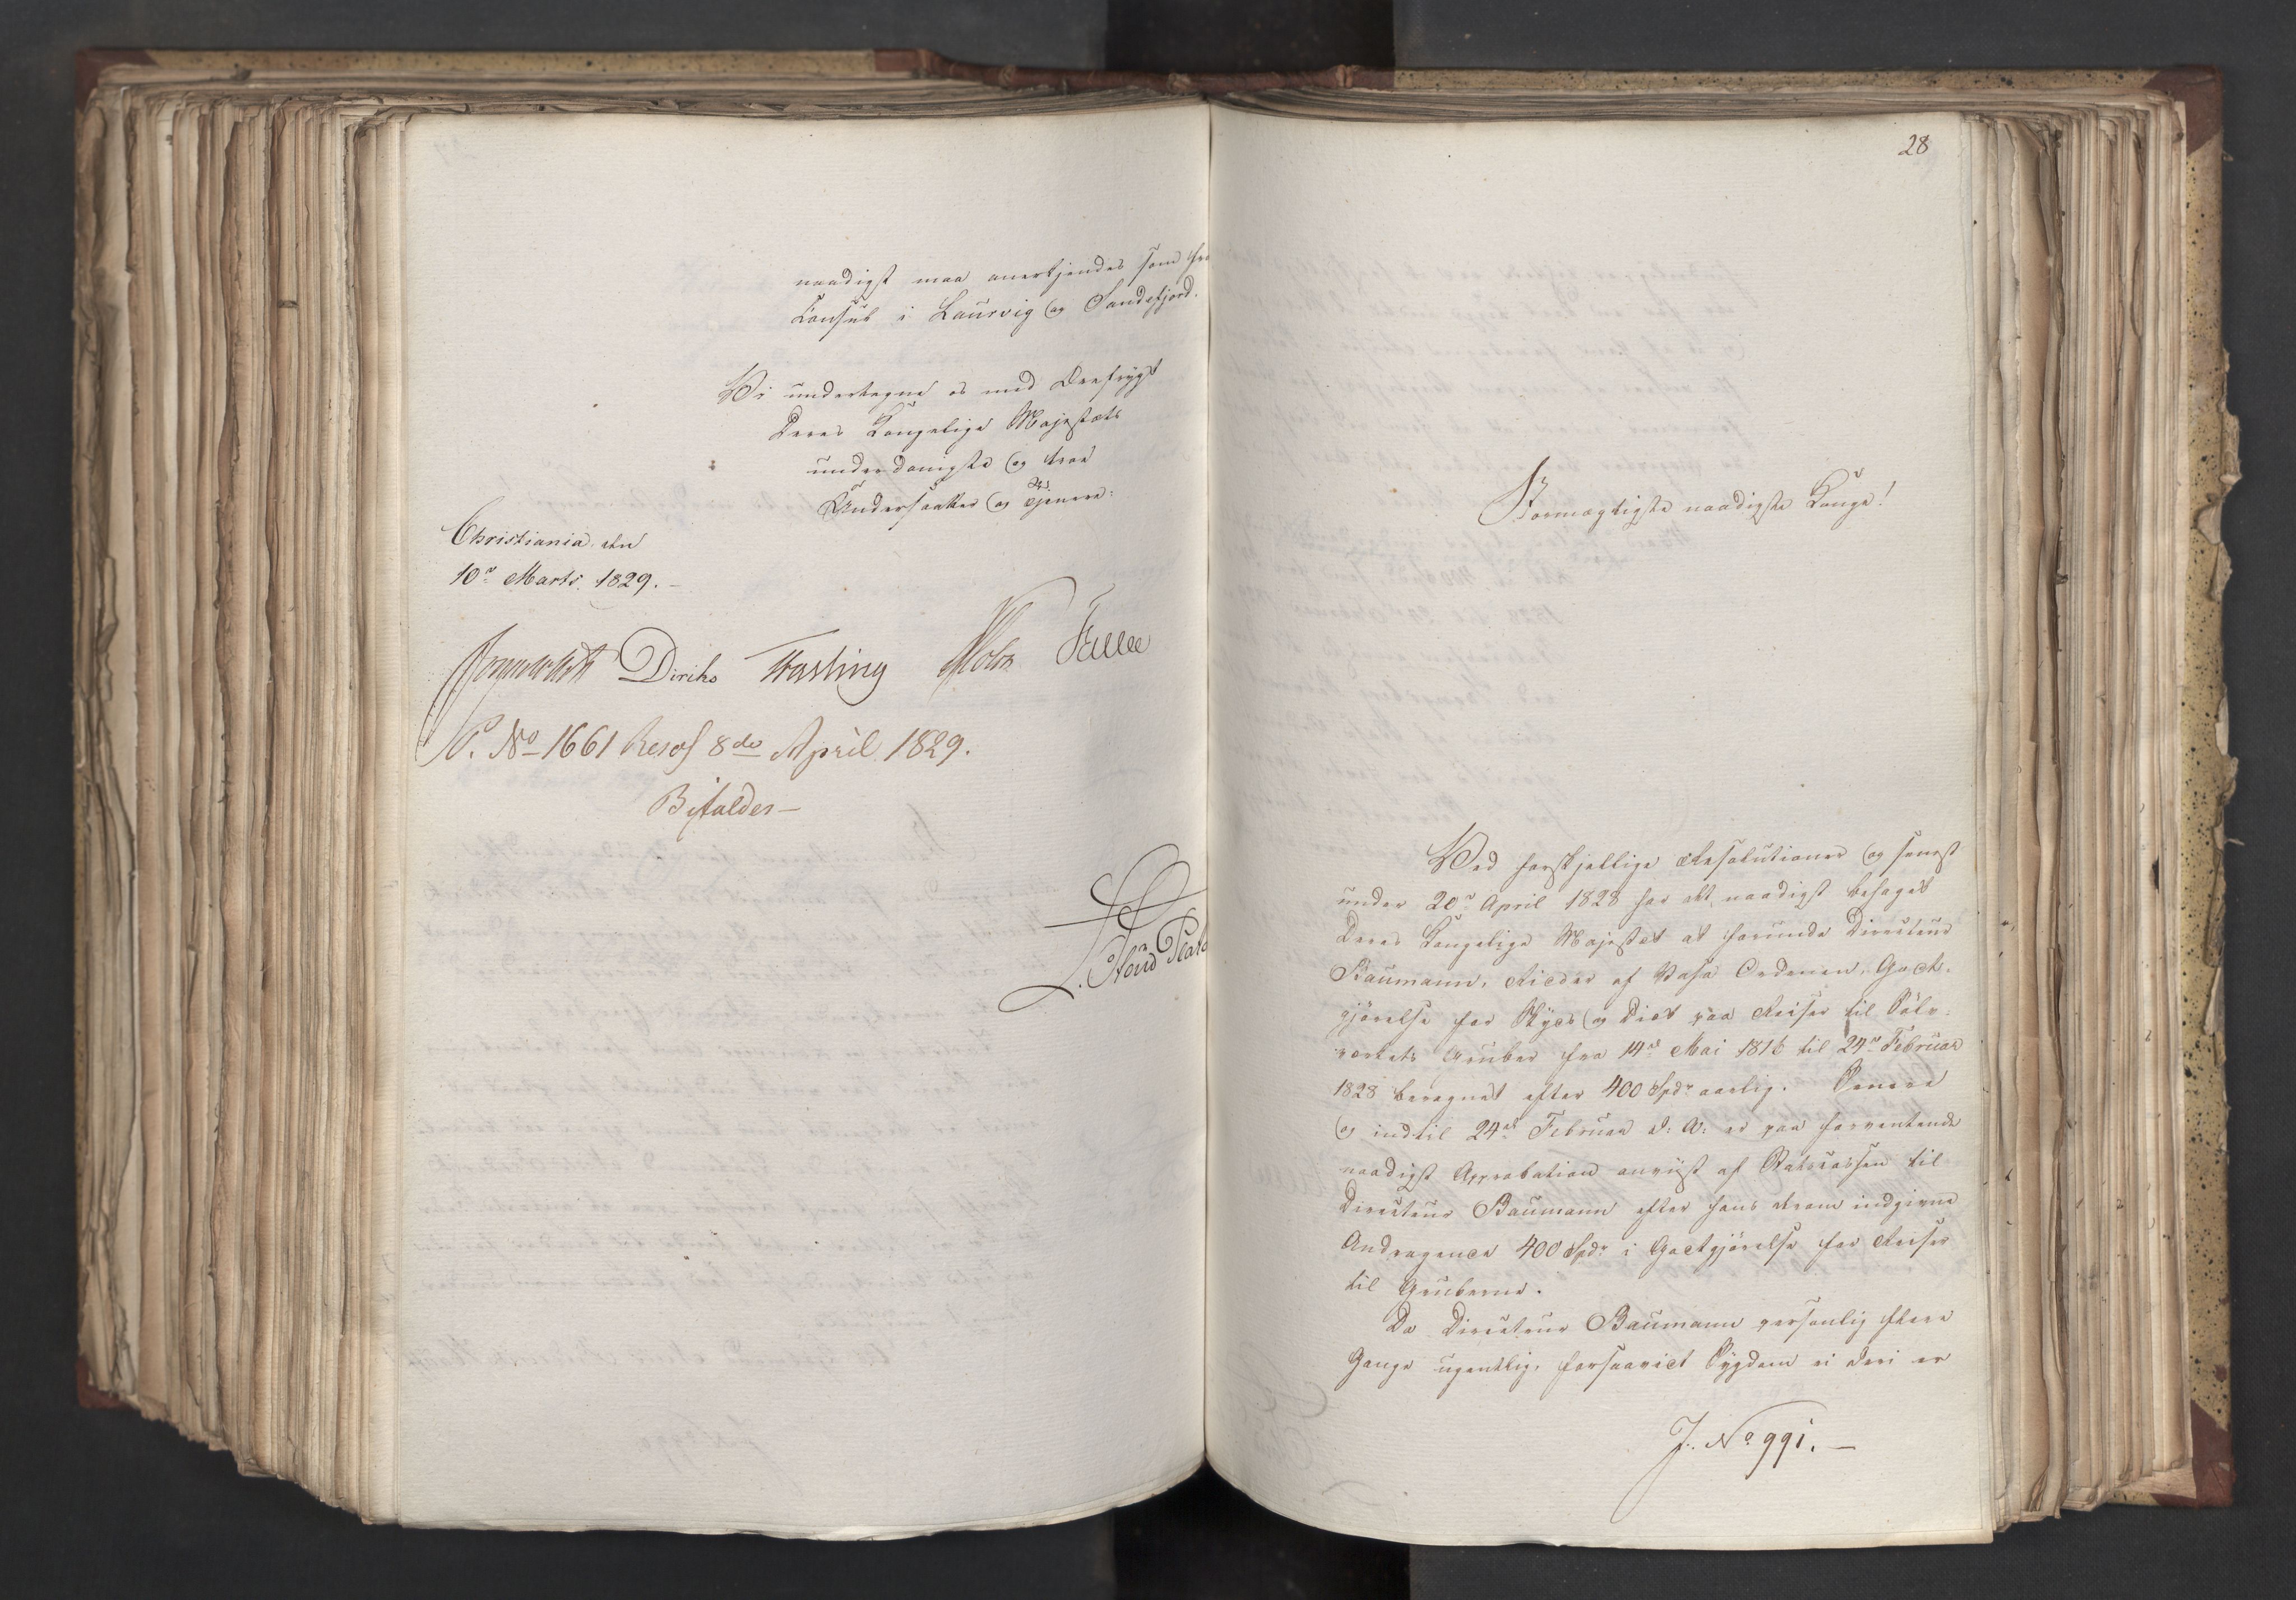 naadigst maa anerkjendes som fra
Consul i Laurvig og Sandefjord.
Vi undertegne os med Ærefrygt
Deres Kongelige Majestæts
underdanigste og troe
Undersaatter og Tjenere:
Christiania, den
10de Marts 1829.
Diriks Fasting Holst
P. No 1661 Resol 8de April 1829.
Bifaldes
28
Stormægtigste naadigste Konge!
Ved forskjellige Resolutioner og senest
under 20de April 1828 har det naadigst behaget
Deres Kongelige Majestæt at forunde Directeur
Baumann, Ridder af Vasa Ordenen, Godt-
gjörelse for Skyds og Diæt paa Reiser til Sölv-
værkets Gruber fra 14de Mai 1816 til 24de Februar
1828 beregnet efter 400 Spdr aarlig. Senere
og indtil 24de Februar d: A: er paa forventende
naadigst Approbation anviist af Statscassen til
Directeur Baumann efter hans derom indgivne
Andragende 400 Spdr i Godtgjörelse for Reiser
til Gruberne.
Da Directeur Baumann personlig flere
Gange ugentlig, forsaavidt Sygdom ei deri er
J. No 991.